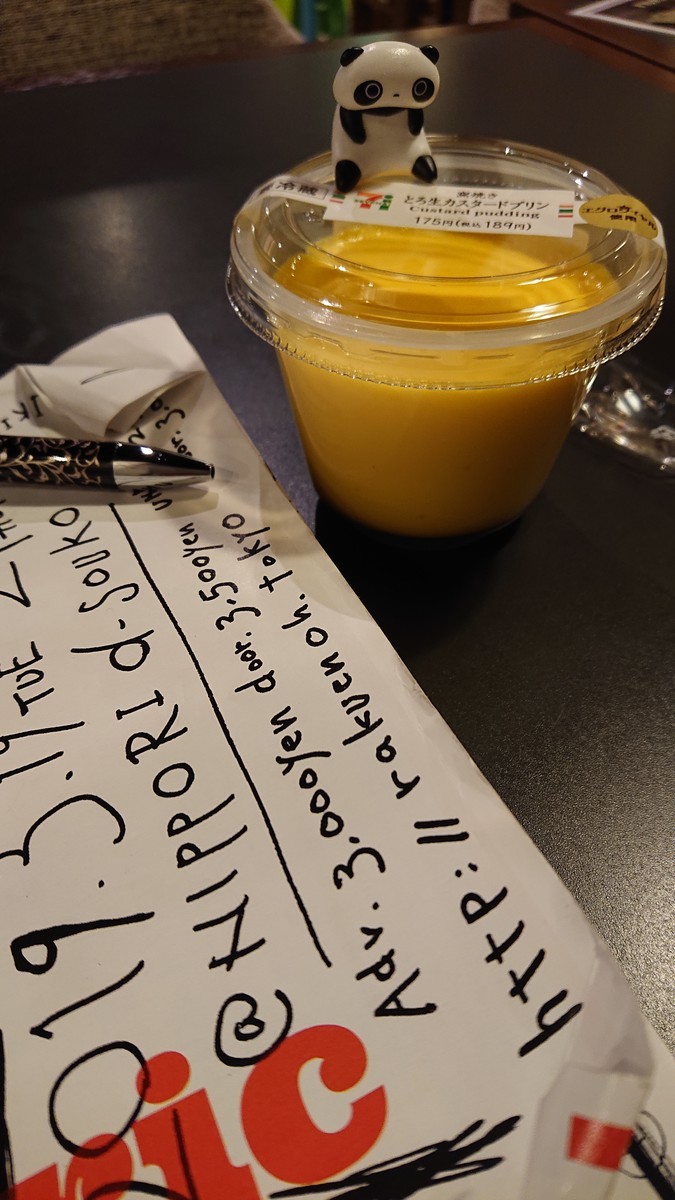 冷蔵
窯焼き
とろ生カスタードプリン
Custard pudding
175円(税込189円)
エグロワイヤル
使用
2019.3.19 TUE
@NIPPORI d-SOUKO
Adv. 3.000yen door. 3.500yen
http://rakuenoh.tokyo
ric